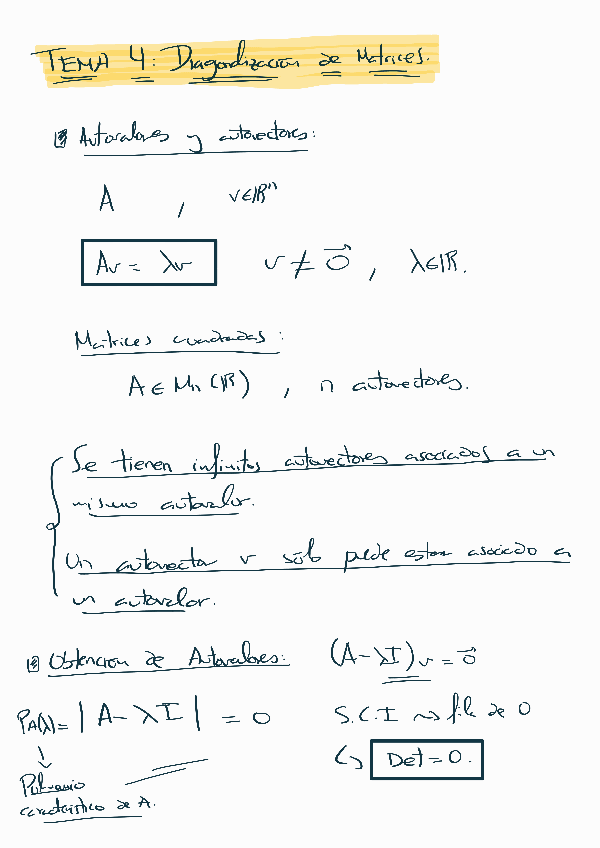 TEMA 4: Diagonalización de Matrices.
Autovalores y autovectores:
A , v∈ℝⁿ
Av = λv v ≠ 0⃗ , λ∈ℝ.
Matrices cuadradas:
A ∈ Mn (ℝ) , n autovectores.
Se tienen infinitos autovectores asociados a un
mismo autovalor.
Un autovector v sólo puede estar asociado a
un autovalor.
Obtención de Autovalores:
(A-λI)v = 0⃗
PA(λ)= |A-λI| = 0
S.C.I ⇝ fila de 0
↳ Det = 0.
↓
Polinomio
característico de A.